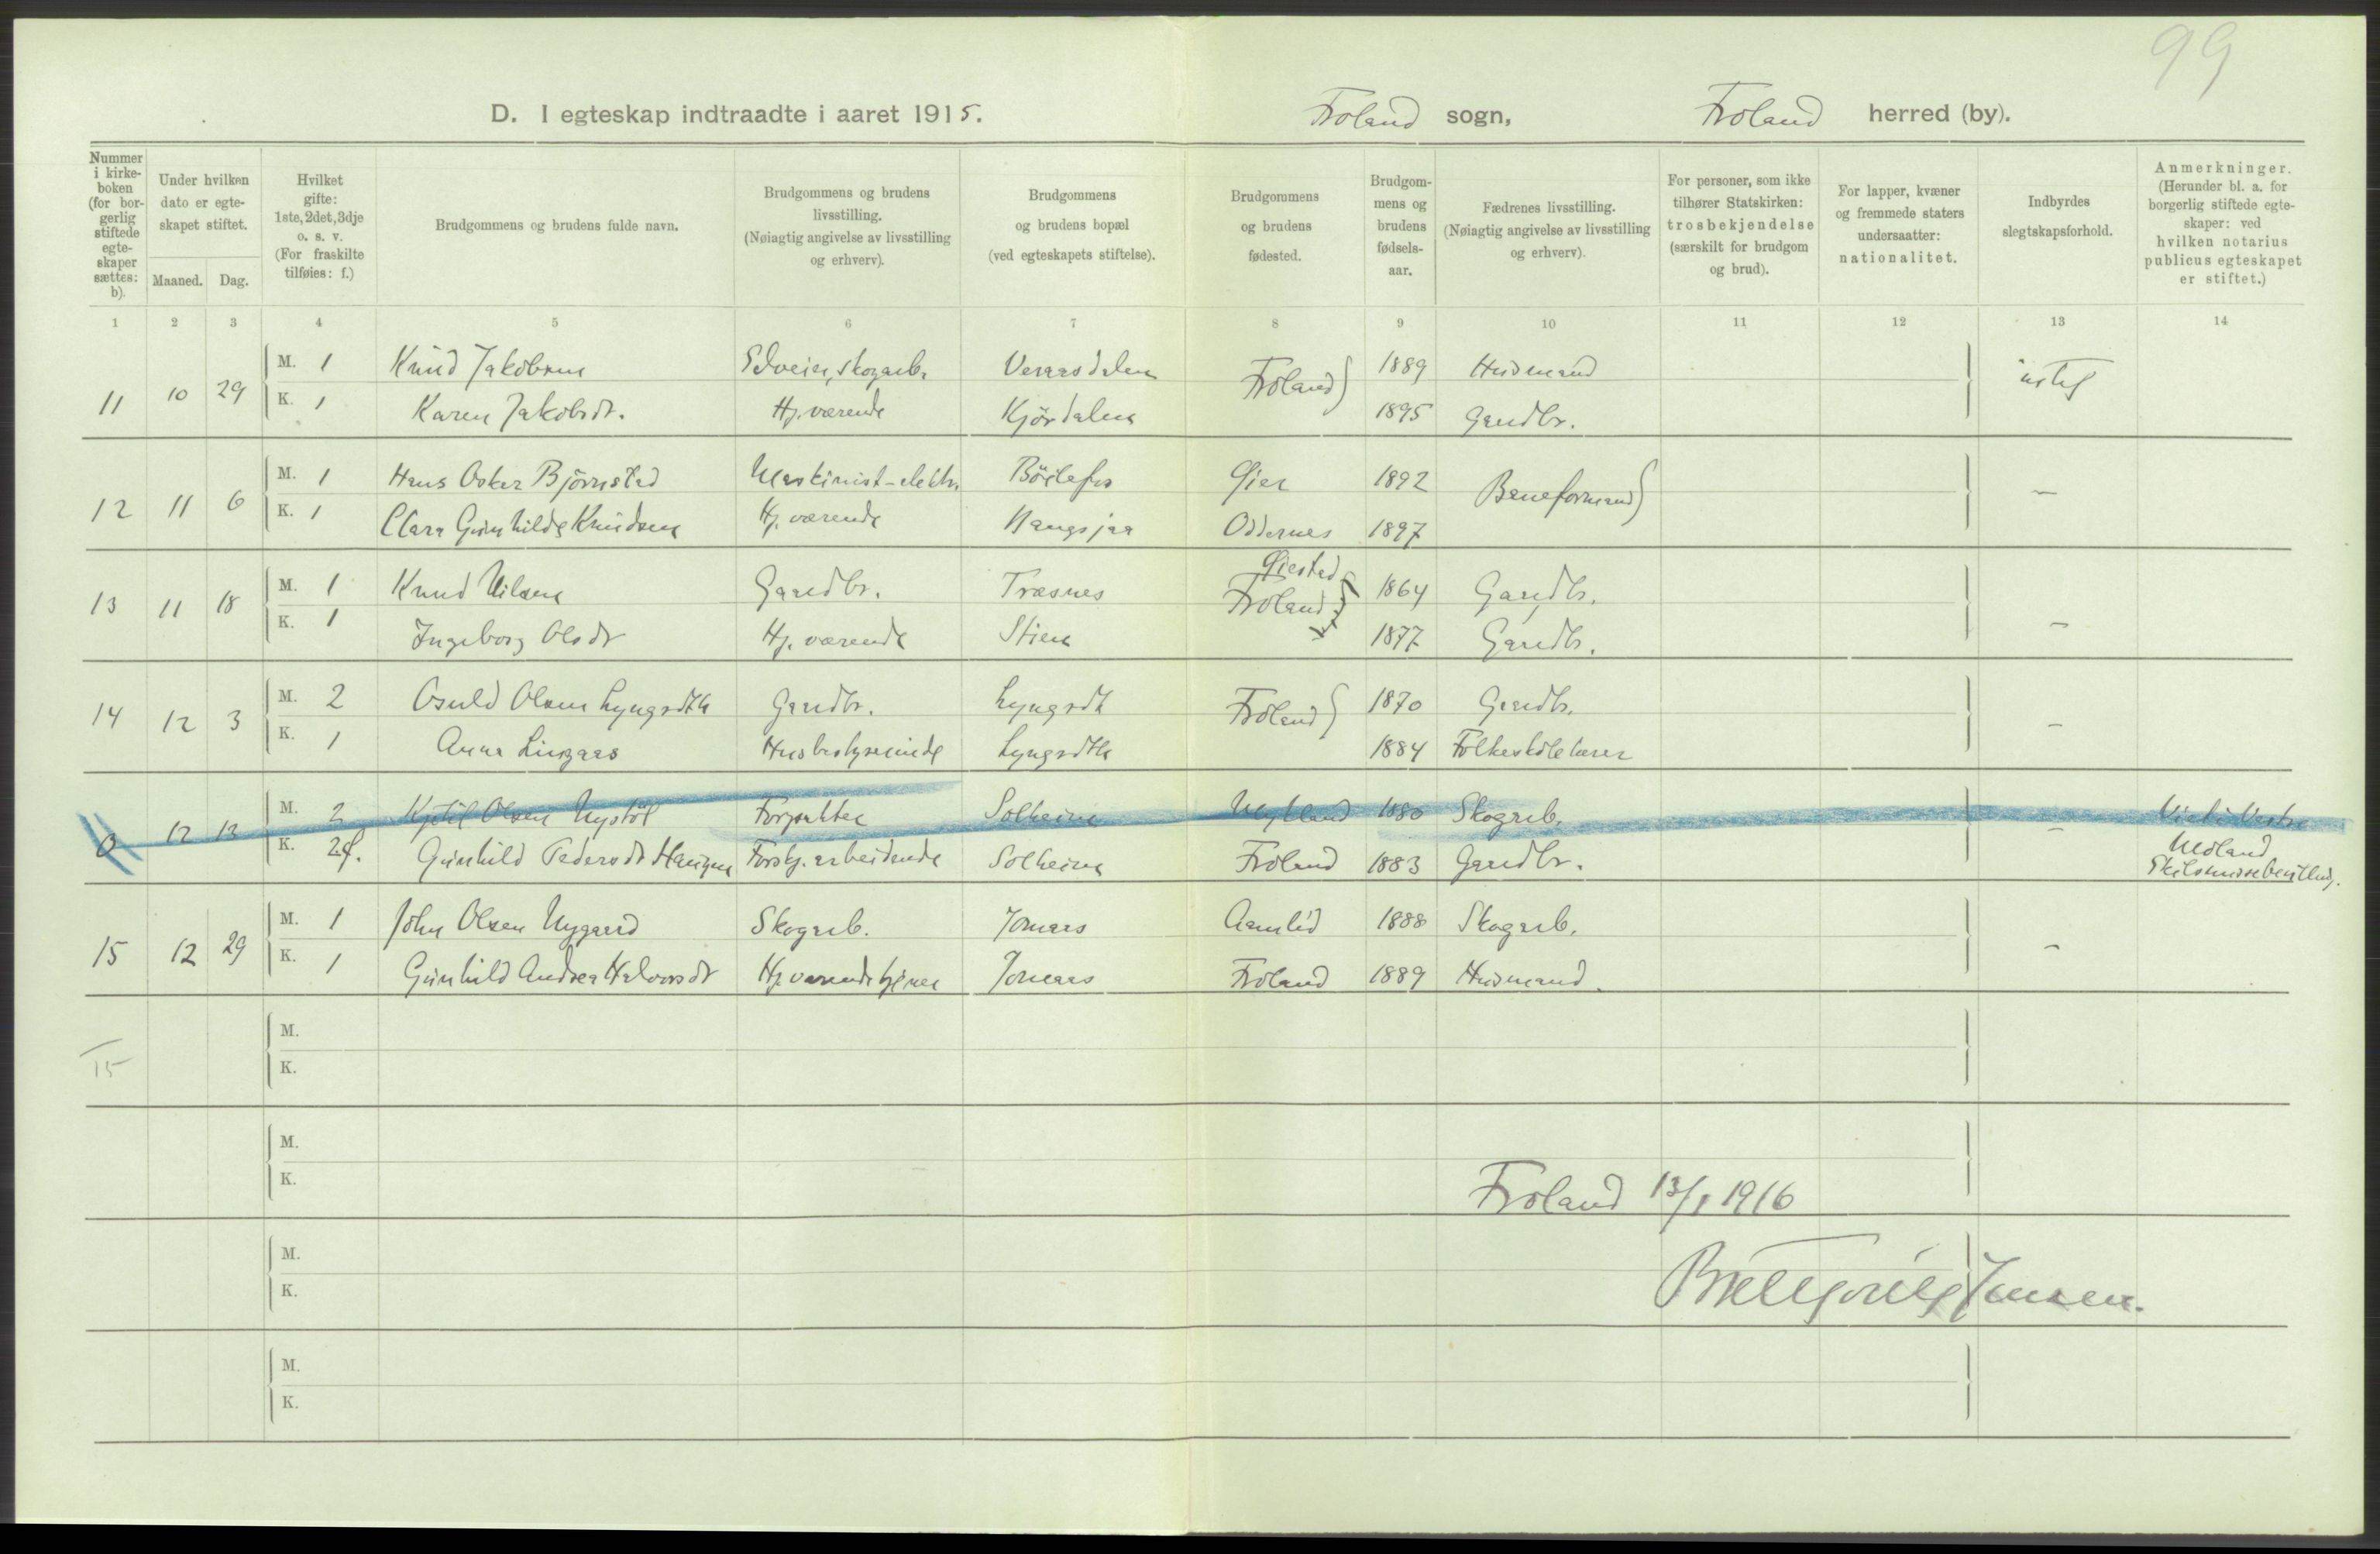 99
D. I egteskap indtraadte i aaret 1915. Froland sogn, Froland herred (by).
Nummer i kirkeboken (for borgerlig stiftede egteskaper sættes: b).
Under hvilken dato er egteskapet stiftet.
Maaned. Dag.
Hvilket gifte: 1ste, 2det, 3dje o. s. v. (For fraskilte tilføies: f.)
Brudgommens og brudens fulde navn.
Brudgommens og brudens livsstilling. (Nøiagtig angivelse av livsstilling og erhverv).
Brudgommens og brudens bopæl (ved egteskapets stiftelse).
Brudgommens og brudens fødested.
Brudgommens og brudens fødselsaar.
Fædrenes livsstilling. (Nøiagtig angivelse av livsstilling og erhverv).
For personer, som ikke tilhører Statskirken: trosbekjendelse (særskilt for brudgom og brud).
For lapper, kvæner og fremmede staters undersaatter: nationalitet.
Indbyrdes slegtskapsforhold.
Anmerkninger. (Herunder bl. a. for borgerlig stiftede egteskaper: ved hvilken notarius publicus egteskapet er stiftet.)
1 2 3 4 5 6 7 8 9 10 11 12 13 14
11 10 29 M. 1 Knud Jakobsen Selveier, skogarb. Froland 1889 Husmand
K. 1 Karen Jakobsdt. Hj. værende Kjördalen 1895 Gaardbr.
12 11 6 M. 1 Hans Oskar Björnstad Maskinist-elektr. Böilefos Gjer 1892 Baneformand
K. 1 Clara Gunhilde Knudsen Hj. værende Haugsjaa Oddernes 1897 –
13 11 18 M. 1 Knud Nilsen Gaardbr. Træsnes Gjestad Froland 1864 Gaardbr.
K. 1 Ingeborg Olsdt Hj. værende Stien 1877 Gaardbr. –
14 12 3 M. 2 Osuld Olsen Lyngrdth Gaardbr. Lyngrdt Froland 1870 Gaardbr.
K. 1 Anna Lingaas Husbestyrerinde Lyngrdth 1884 Folkeskolelærer –
0 12 13 M. 2 Kjetil Olsen Nystöl Forpakter Solheim Mykland 1880 Skogarb. Viet i Vestre
K. 2f. Gunhild Pedersdt Haugen Forskj. arbeidende Solheim Froland 1883 Gaardbr. – Moland
Skilsmissebevilling.
15 12 29 M. 1 John Olsen Nygaard Skogarb. Jomaas Aamlid 1888 Skogarb.
K. 1 Gunhild Andrea Halvorsdt Hj. værende Jomaas Froland 1889 Husmand. –
M.
15
K.
M.
K.
Froland 13/1 1916
M.
K.
Jensen.
M.
K.